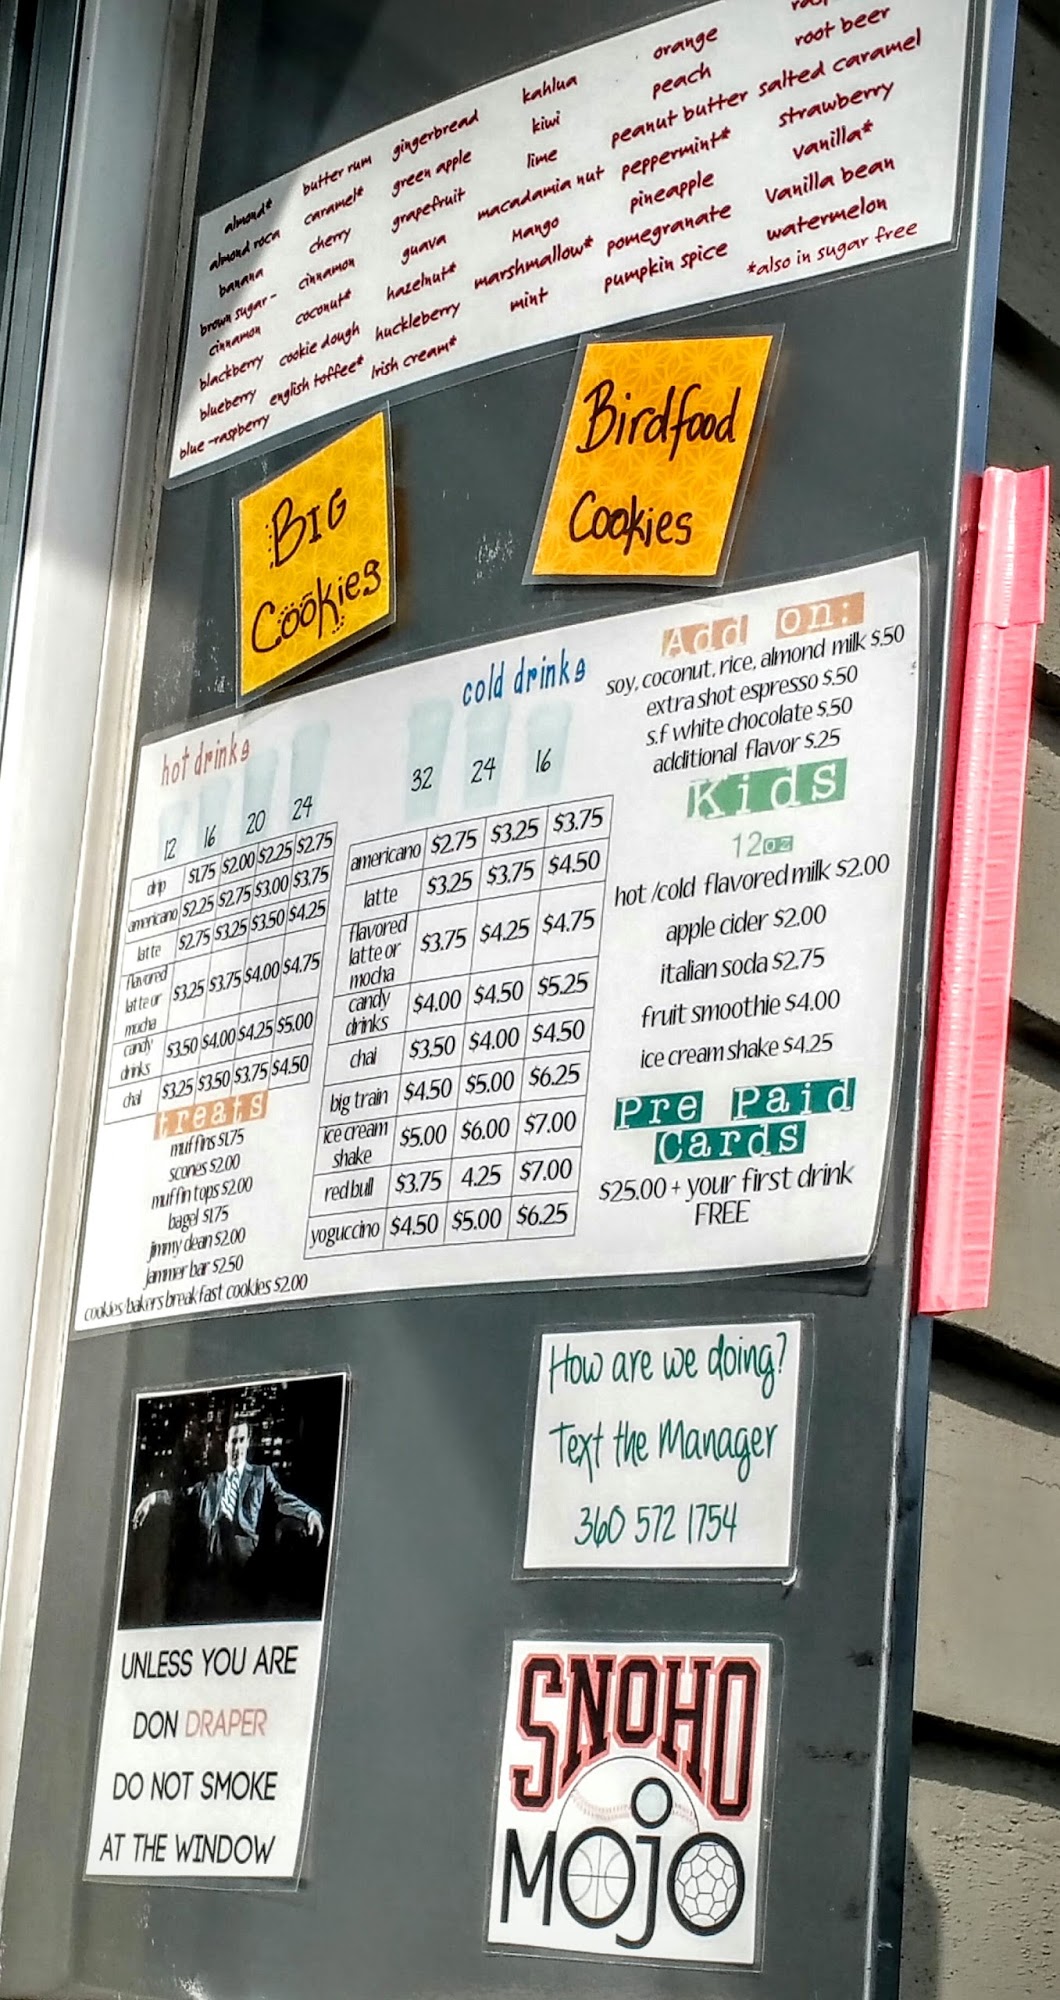 almond*
almond roca
banana
brown sugar-
cinnamon
blackberry
blueberry
blue-raspberry
butter rum
caramel*
cherry
cinnamon
coconut*
cookie dough
english toffee*
gingerbread
green apple
grapefruit
guava
hazelnut*
huckleberry
Irish cream*
kahlua
kiwi
lime
macadamia nut
mango
marshmallow*
mint
orange
peach
peanut butter
peppermint*
pineapple
pomegranate
pumpkin spice
root beer
salted caramel
strawberry
vanilla*
vanilla bean
watermelon
*also in sugar free
BIG
Cookies
Birdfood
Cookies
hot drinks
12 16 20 24
drip $1.75 $2.00 $2.25 $2.75
americano $2.25 $2.75 $3.00 $3.75
latte $2.75 $3.25 $3.50 $4.25
flavored
latte or
mocha $3.25 $3.75 $4.00 $4.75
candy
drinks $3.50 $4.00 $4.25 $5.00
chai $3.25 $3.50 $3.75 $4.50
treats
muffins $1.75
scones $2.00
muffin tops $2.00
bagel $1.75
jimmy dean $2.00
jammer bar $2.50
cookies/bakers breakfast cookies $2.00
cold drinks
32 24 16
americano $2.75 $3.25 $3.75
latte $3.25 $3.75 $4.50
flavored
latte or
mocha $3.75 $4.25 $4.75
candy
drinks $4.00 $4.50 $5.25
chai $3.50 $4.00 $4.50
big train $4.50 $5.00 $6.25
ice cream
shake $5.00 $6.00 $7.00
red bull $3.75 4.25 $7.00
yoguccino $4.50 $5.00 $6.25
Add on:
soy, coconut, rice, almond milk $.50
extra shot espresso $.50
s.f white chocolate $.50
additional flavor $.25
Kids
12oz
hot /cold flavored milk $2.00
apple cider $2.00
italian soda $2.75
fruit smoothie $4.00
ice cream shake $4.25
Pre Paid
Cards
$25.00 + your first drink
FREE
How are we doing?
Text the Manager
360 572 1754
UNLESS YOU ARE
DON DRAPER
DO NOT SMOKE
AT THE WINDOW
SNOHO
MOJO